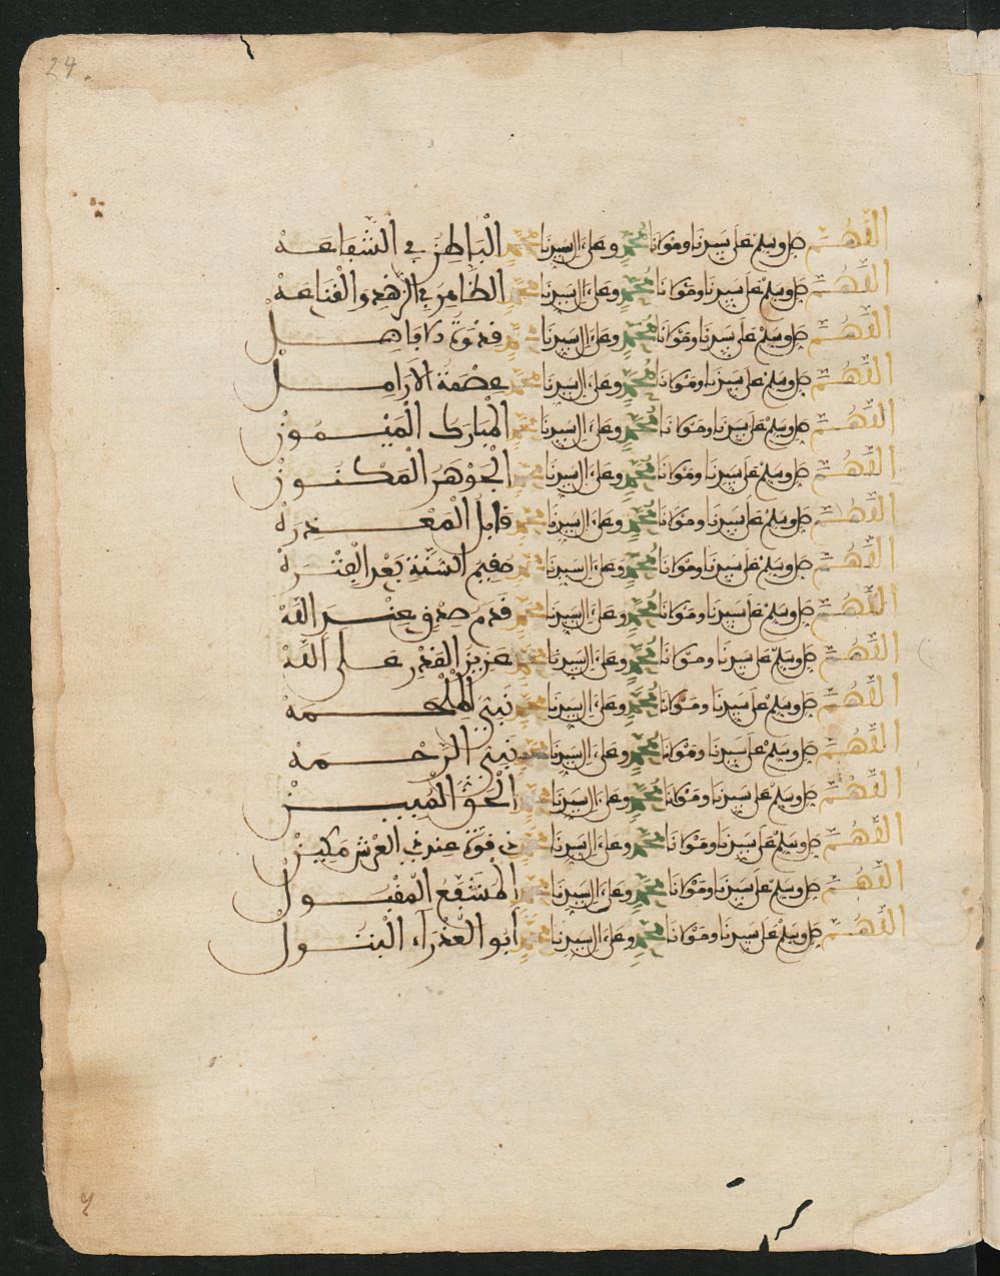 24.
اللهم صل وسلم على سيدنا ومولانا محمد وعلى ال سيدنا محمد الباطن في الشفاعه
اللهم صل وسلم على سيدنا ومولانا محمد وعلى ال سيدنا محمد الظاهر في الزهد والقناعه
اللهم صل وسلم على سيدنا ومولانا محمد وعلى ال سيدنا محمد قدوة
اللهم صل وسلم على سيدنا ومولانا محمد وعلى ال سيدنا محمد عصمة الارامل
اللهم صل وسلم على سيدنا ومولانا محمد وعلى ال سيدنا محمد المبارك الميمون
اللهم صل وسلم على سيدنا ومولانا محمد وعلى ال سيدنا محمد الجوهر المكنون
اللهم صل وسلم على سيدنا ومولانا محمد وعلى ال سيدنا محمد قابل المعذره
اللهم صل وسلم على سيدنا ومولانا محمد وعلى ال سيدنا محمد مقيم السنة بعد الفتره
اللهم صل وسلم على سيدنا ومولانا محمد وعلى ال سيدنا محمد قدم صدق عند الله
اللهم صل وسلم على سيدنا ومولانا محمد وعلى ال سيدنا محمد عزيز القدر على الله
اللهم صل وسلم على سيدنا ومولانا محمد وعلى ال سيدنا محمد نبي الملحمه
اللهم صل وسلم على سيدنا ومولانا محمد وعلى ال سيدنا محمد نبي الرحمه
اللهم صل وسلم على سيدنا ومولانا محمد وعلى ال سيدنا محمد الحق المبين
اللهم صل وسلم على سيدنا ومولانا محمد وعلى ال سيدنا محمد ذي قوة عند ذي العرش مكين
اللهم صل وسلم على سيدنا ومولانا محمد وعلى ال سيدنا محمد المشفع المقبول
اللهم صل وسلم على سيدنا ومولانا محمد وعلى ال سيدنا محمد أبو العذراء البتول